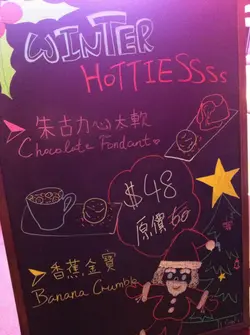 WINTER
HOTTIESSss
朱古力心太軟
Chocolate Fondant
$48
原價60
香蕉金寶
Banana Crumble